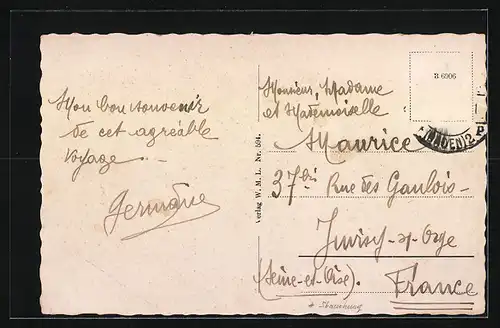 Mon bon souvenir
de cet agréable
voyage.
Germaine
Verlag W. M. L. Nr. 594.
B 6906
Monsieur, Madame
et Mademoiselle
Maurice
37 bis Rue des Gaulois
Juvisy-s/-Orge
(Seine-et-Oise).
France